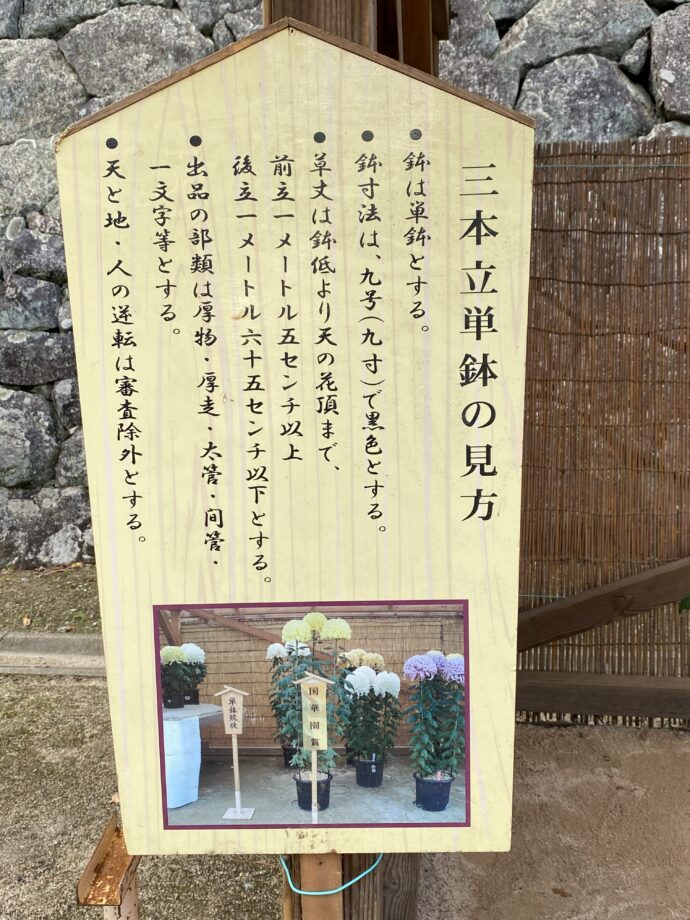 三本立単鉢の見方
●鉢は単鉢とする。
●鉢寸法は、九号(九寸)で黒色とする。
●草丈は鉢低より天の花頂まで、
前立一メートル五センチ以上
後立一メートル六十五センチ以下とする。
●出品の部類は厚物・厚走・太管・間管・
一文字等とする。
●天と地・人の逆転は審査除外とする。
単鉢競技
国華園賞